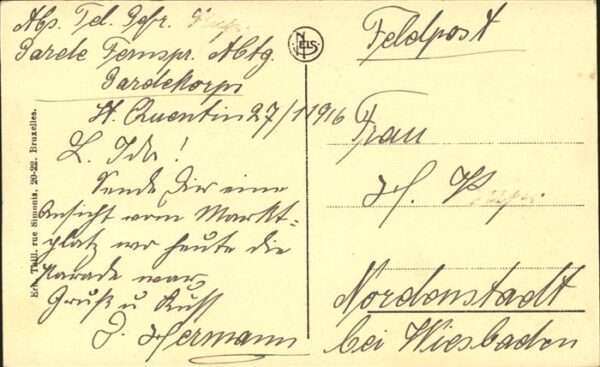 Abs. Tel. Gefr.
Garde Fernspr. Abtg.
Gardekorps
St. Quentin 27/1 1916
L. Ida!
Sende Dir eine
Ansicht vom Markt-
platz wo heute die
Parade war
Gruß u Kuss
D. Hermann
Feldpost
Frau
H.
Nordenstadt
bei Wiesbaden
NELS
Ern. Thill, rue Simonis, 20-22, Bruxelles.